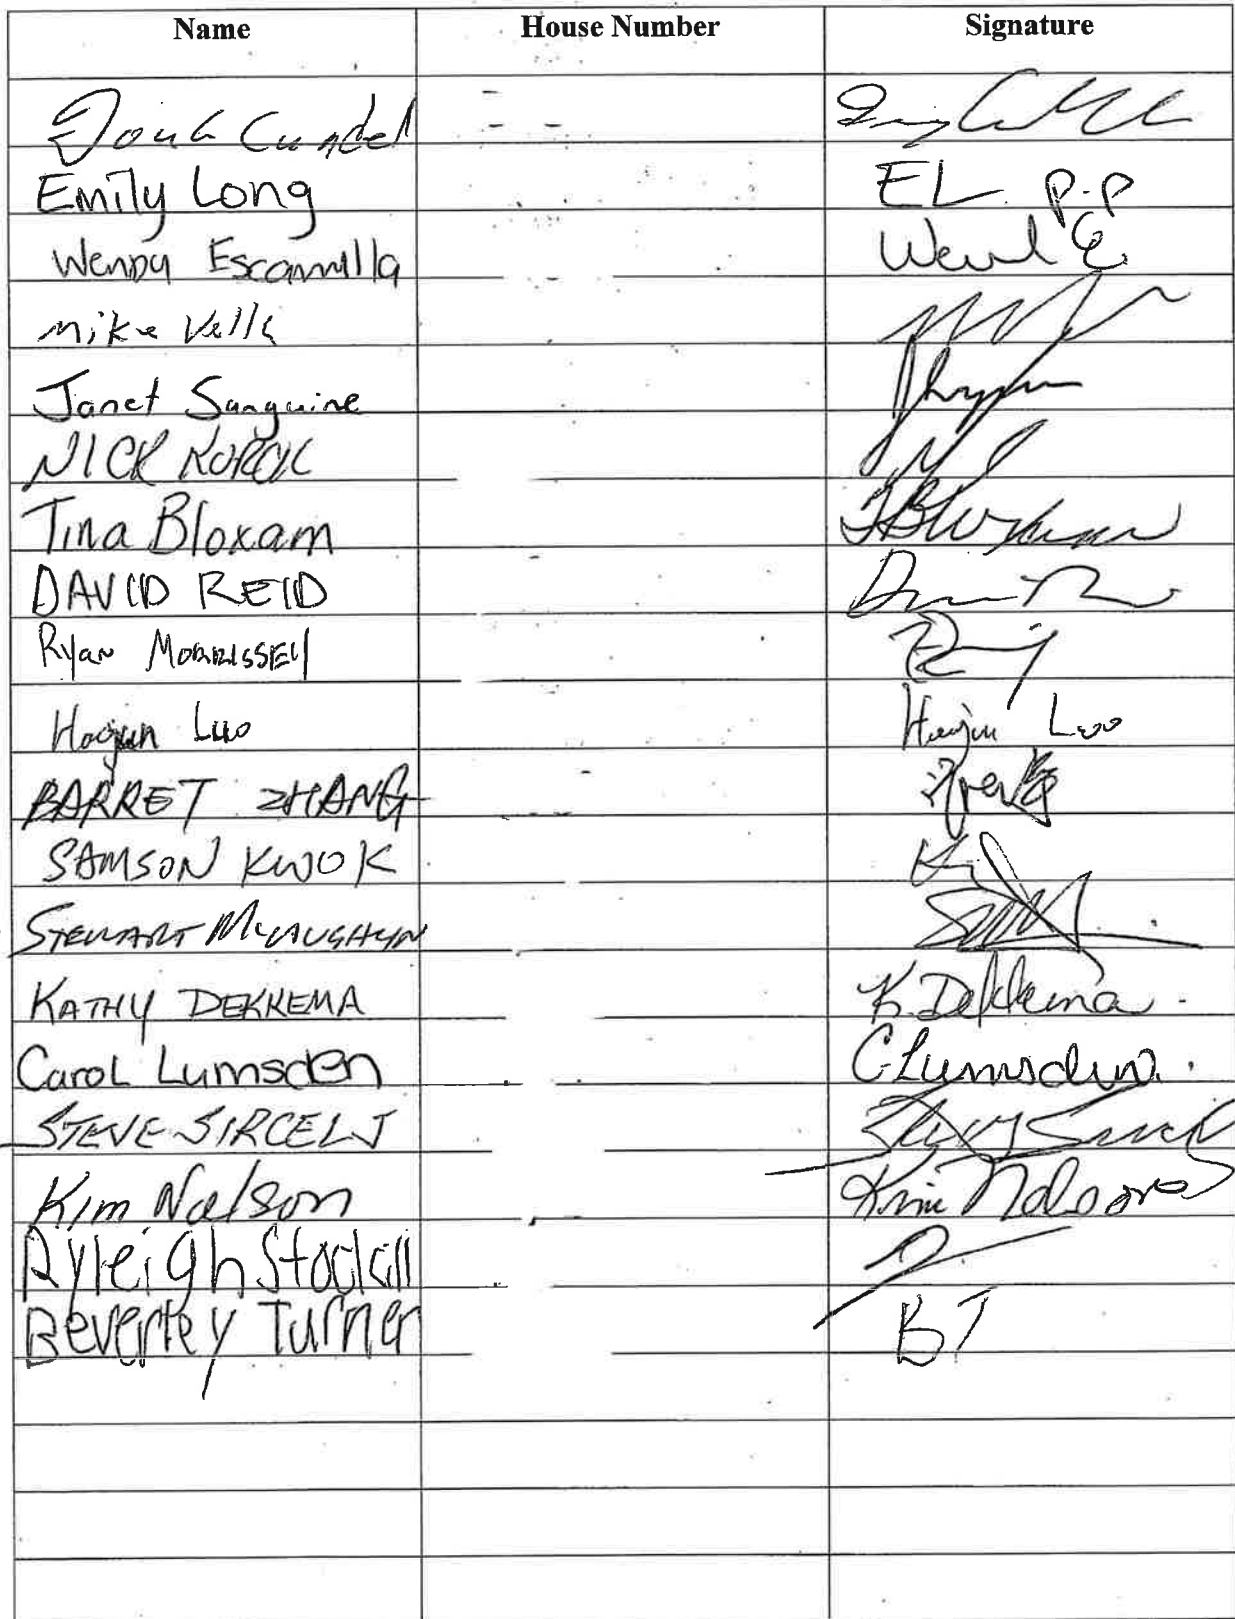 Name House Number Signature
Doug Cundel
Emily Long EL p.p
Wendy Escamilla Wend E
Mike Vella
Janet Sanguine
NICK
Tina Bloxam TBloxam
DAVID REID
Ryan MORRISSEY
Haojun Luo Haojun Luo
BARRET ZHANG
SAMSON KWOK
STEWART MCLAUGHLIN
KATHY DEKKEMA K. Dekkema
Carol Lumsden C Lumsden.
STEVE SIRCELJ
Kim Nelson Kim Nelson
Ryleigh Stockill
Beverley Turner BT